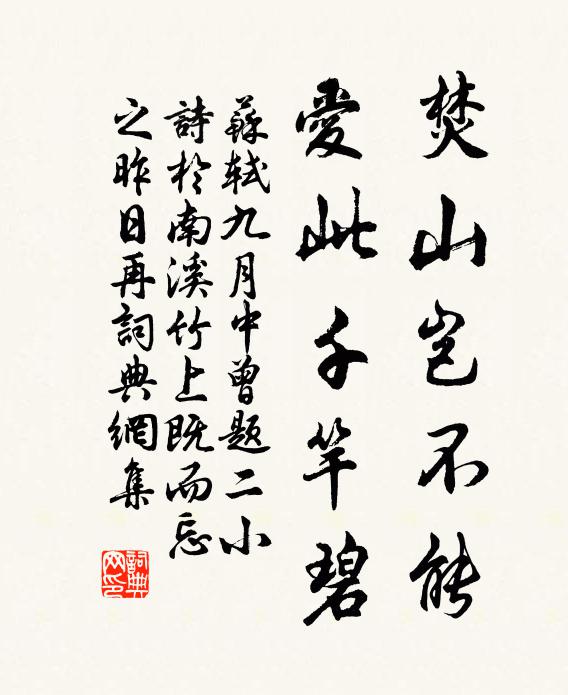 焚山岂不能
愛此千竿碧
蘇軾九月中曾題二小
詩於南溪竹上既而忘
之昨日再詞典網集
詞典
网印